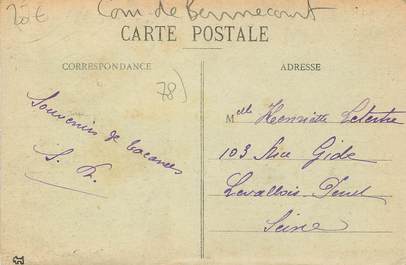 20€
Com de Bennecourt
CARTE POSTALE
CORRESPONDANCE
ADRESSE
78)
Souvenirs de vacances
Mlle Henriette Letertre
103 Rue Gide
Levallois-Perret
Seine